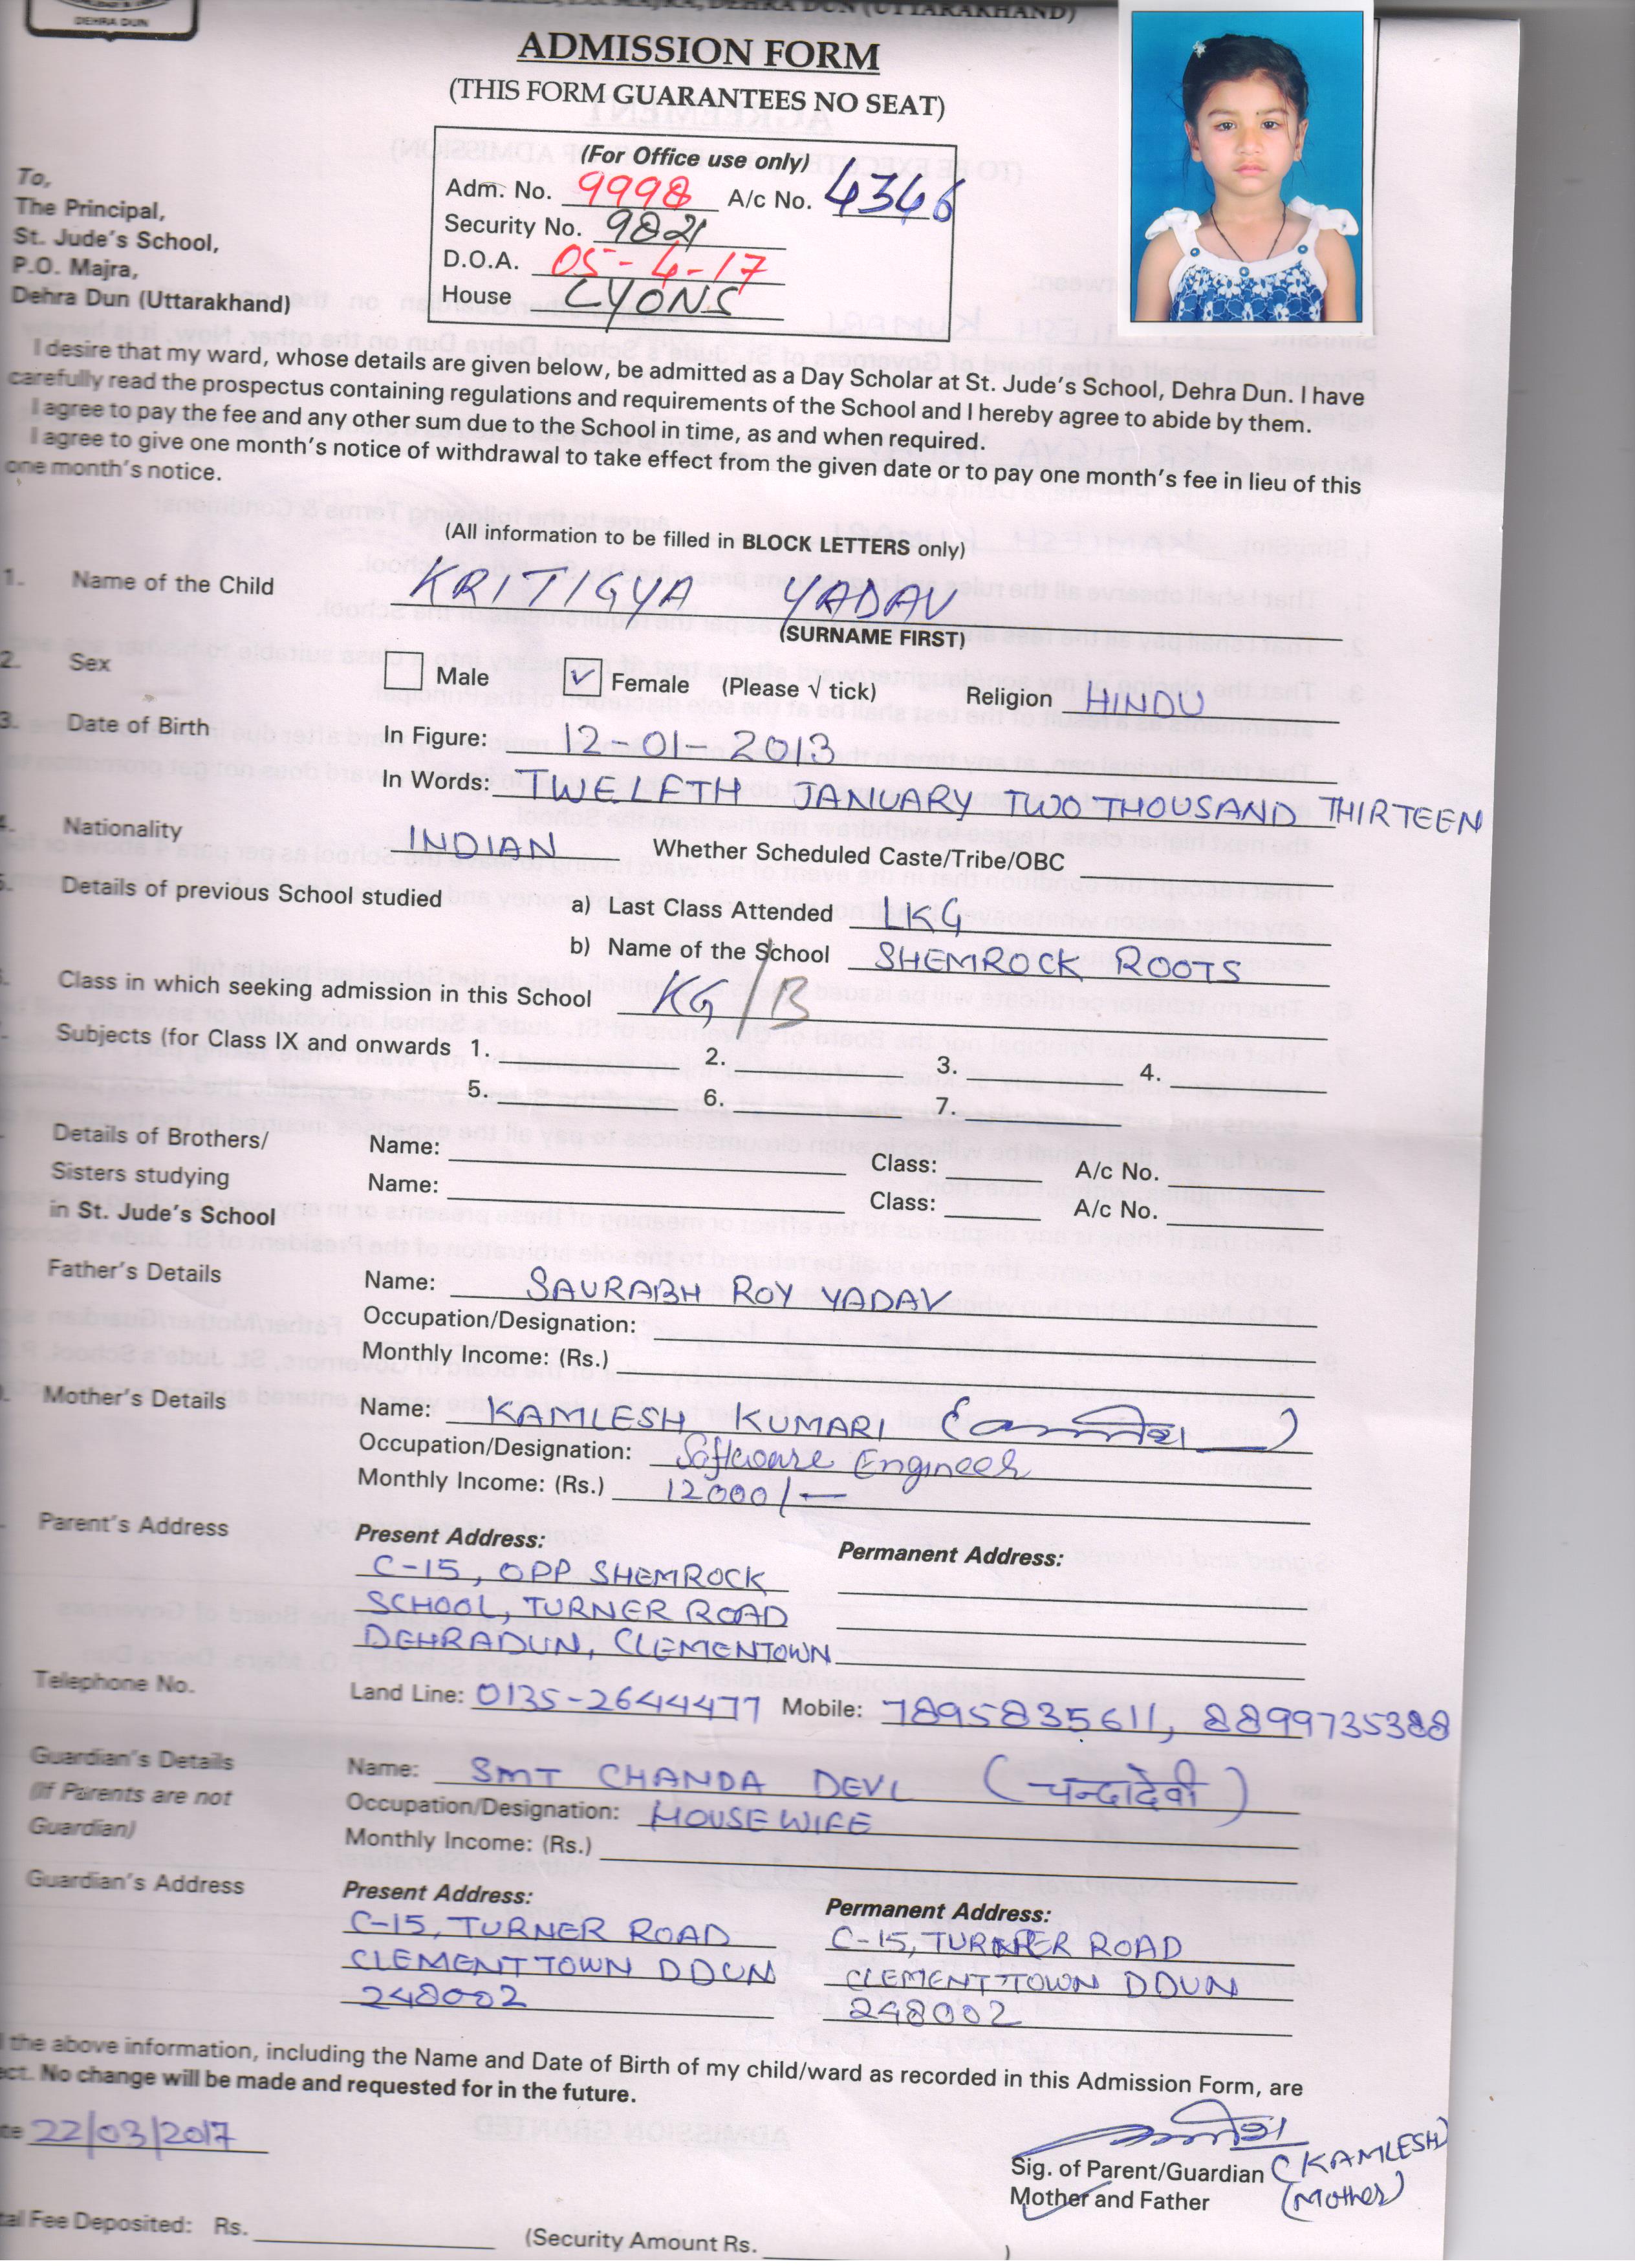 DEHRA DUN
MAJRA, DEHRA DUN (UTTARAKHAND)
ADMISSION FORM
(THIS FORM GUARANTEES NO SEAT)
(For Office use only)
Adm. No. 9998 A/c No. 4346
Security No. 9821
D.O.A. 05-4-17
House LYONS
To,
The Principal,
St. Jude's School,
P.O. Majra,
Dehra Dun (Uttarakhand)
I desire that my ward, whose details are given below, be admitted as a Day Scholar at St. Jude's School, Dehra Dun. I have
carefully read the prospectus containing regulations and requirements of the School and I hereby agree to abide by them.
I agree to pay the fee and any other sum due to the School in time, as and when required.
I agree to give one month's notice of withdrawal to take effect from the given date or to pay one month's fee in lieu of this
one month's notice.
(All information to be filled in BLOCK LETTERS only)
1. Name of the Child KRITIGYA YADAV
(SURNAME FIRST)
2. Sex Male ✓ Female (Please √ tick) Religion HINDU
3. Date of Birth In Figure: 12-01-2013
In Words: TWELFTH JANUARY TWO THOUSAND THIRTEEN
4. Nationality INDIAN Whether Scheduled Caste/Tribe/OBC
5. Details of previous School studied a) Last Class Attended LKG
b) Name of the School SHEMROCK ROOTS
Class in which seeking admission in this School KG/B
Subjects (for Class IX and onwards 1. 2. 3. 4.
5. 6. 7.
Details of Brothers/ Name: Class: A/c No.
Sisters studying Name: Class: A/c No.
in St. Jude's School
Father's Details Name: SAURABH ROY YADAV
Occupation/Designation:
Monthly Income: (Rs.)
Mother's Details Name: KAMLESH KUMARI (कमलेश)
Occupation/Designation: Software Engineer
Monthly Income: (Rs.) 12000/-
Parent's Address Present Address: Permanent Address:
C-15, OPP SHEMROCK
SCHOOL, TURNER ROAD
DEHRADUN, CLEMENTOWN
Telephone No. Land Line: 0135-2644477 Mobile: 7895835611, 8899735388
Guardian's Details Name: SMT CHANDA DEVI (चन्दादेवी)
(If Parents are not Occupation/Designation: HOUSE WIFE
Guardian) Monthly Income: (Rs.)
Guardian's Address Present Address: Permanent Address:
C-15, TURNER ROAD C-15, TURNER ROAD
CLEMENT TOWN DDUN CLEMENT TOWN DDUN
248002 248002
the above information, including the Name and Date of Birth of my child/ward as recorded in this Admission Form, are
No change will be made and requested for in the future.
22/03/2017
कमलेश
Sig. of Parent/Guardian (KAMLESH)
Mother and Father (Mother)
Fee Deposited: Rs. (Security Amount Rs. )